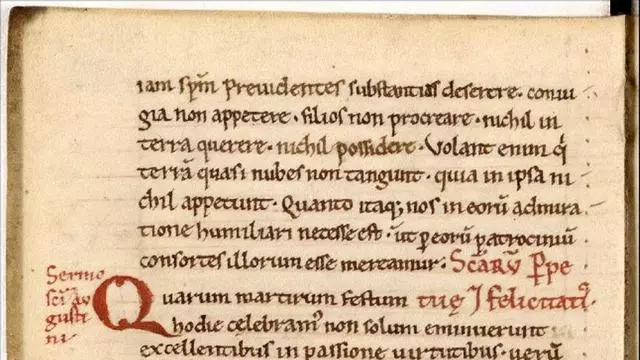 iam sp̄m Previdentes substantias deserere · coniu
gia non appetere · filios non procreare · nichil in
terra querere · nichil possidere · Volant enim q̇
terrā quasi nubes non tangunt · quia in ipsa ni
chil appetunt · Quanto itaq; nos in eorū admira
tione humiliari necesse est · ut p̱ eorū patrociniū
consortes illorum esse mereamur · Sc̄arū P̱pe
Sermo
sc̄i au
gusti
ni
Quarum martirum festum tuę ⁊ felicitatis
hodie celebram' non solum emiņuerunt
excellentibus in passione virtutibus · verū